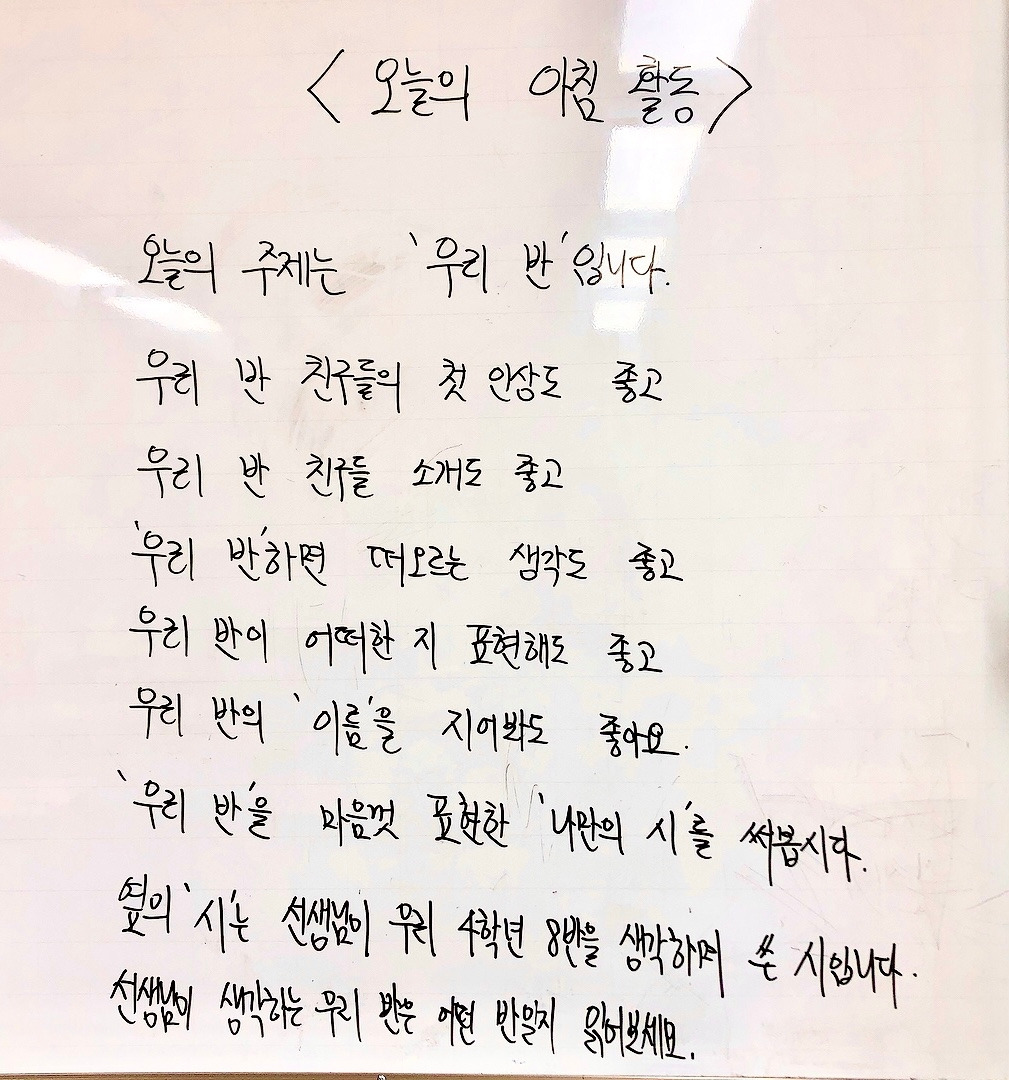 <오늘의 아침 활동>
오늘의 주제는 '우리 반'입니다.
우리 반 친구들의 첫 인상도 좋고
우리 반 친구들 소개도 좋고
'우리 반'하면 떠오르는 생각도 좋고
우리 반이 어떠한 지 표현해도 좋고
우리 반의 '이름'을 지어봐도 좋아요.
'우리 반'을 마음껏 표현한 '나만의 시'를 써봅시다.
옆의 '시'는 선생님이 우리 4학년 8반을 생각하며 쓴 시입니다.
선생님이 생각하는 우리 반은 어떤 반일지 읽어보세요.